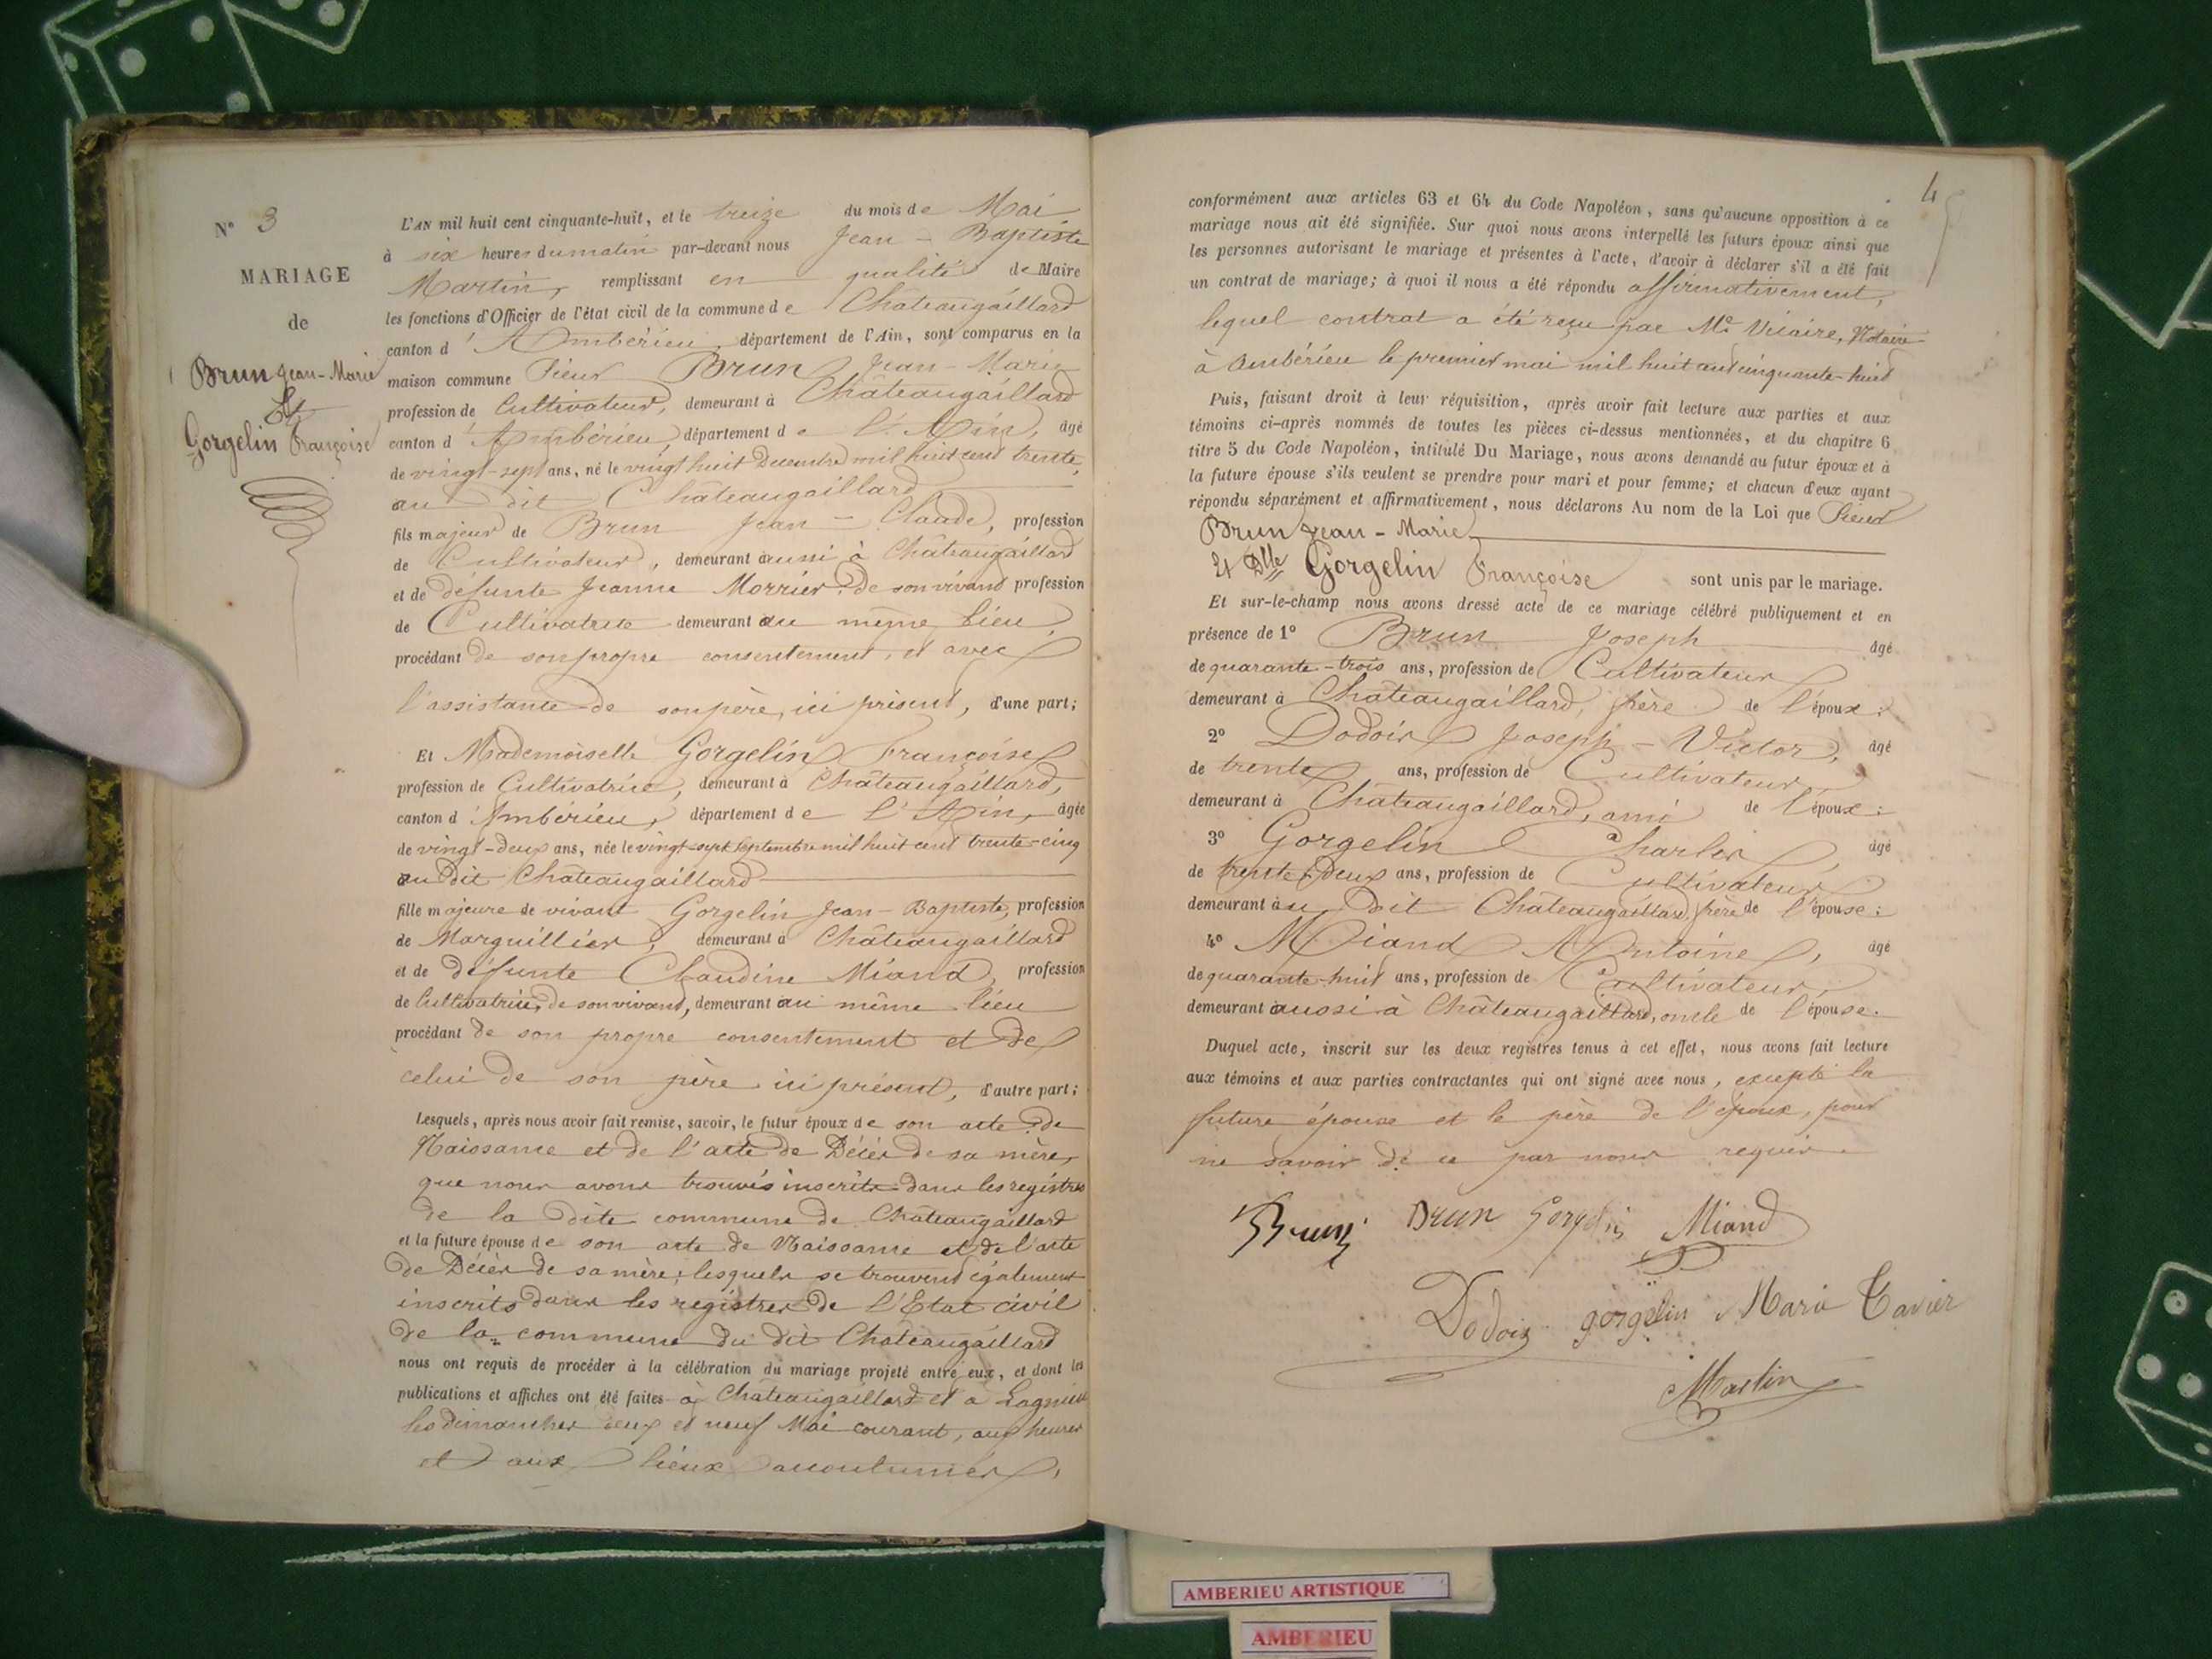 N° 3
MARIAGE
de
Brun Jean-Marie
Et
Gorgelin Françoise
L'AN mil huit cent cinquante-huit, et le treize du mois de Mai
à six heures du matin par-devant nous Jean-Baptiste
Martin, remplissant en qualité de Maire
les fonctions d'Officier de l'état civil de la commune de Châteaugaillard
canton d'Ambérieu, département de l'Ain, sont comparus en la
maison commune Sieur Brun Jean-Marie
profession de Cultivateur, demeurant à Châteaugaillard
canton d'Ambérieu, département de l'Ain, âgé
de vingt-sept ans, né le vingt huit Decembre mil huit cent trente,
au dit Châteaugaillard
fils majeur de Brun Jean-Claude, profession
de Cultivateur, demeurant aussi à Châteaugaillard
et de défunte Jeanne Morrier de son vivant profession
de Cultivatrice demeurant au même lieu,
procédant de son propre consentement, et avec
l'assistance de son père, ici présent, d'une part;
Et Mademoiselle Gorgelin Françoise
profession de Cultivatrice, demeurant à Châteaugaillard,
canton d'Ambérieu, département de l'Ain, âgée
de vingt-deux ans, née le vingt-sept Septembre mil huit cent trente-cinq
au dit Châteaugaillard
fille majeure de vivant Gorgelin Jean-Baptiste, profession
de Marguillier, demeurant à Châteaugaillard
et de défunte Claudine Miand, profession
de Cultivatrice, de son vivant, demeurant au même lieu
procédant de son propre consentement et de
celui de son père ici présent, d'autre part;
Lesquels, après nous avoir fait remise, savoir, le futur époux de son acte de
Naissance et de l'acte de Décès de sa mère,
que nous avons trouvés inscrits dans les registres
de la dite commune de Châteaugaillard
et la future épouse de son acte de Naissance et de l'acte
de Décès de sa mère; lesquels se trouvent également
inscrits dans les registres de l'Etat civil
de la commune du dit Châteaugaillard
nous ont requis de procéder à la célébration du mariage projeté entre eux, et dont les
publications et affiches ont été faites à Châteaugaillard et à Lagnieu
les dimanches deux et neuf Mai courant, aux heures
et aux lieux accoutumés,
4
conformément aux articles 63 et 64 du Code Napoléon, sans qu'aucune opposition à ce
mariage nous ait été signifiée. Sur quoi nous avons interpellé les futurs époux ainsi que
les personnes autorisant le mariage et présentes à l'acte, d'avoir à déclarer s'il a été fait
un contrat de mariage; à quoi il nous a été répondu affirmativement,
lequel contrat a été reçu par Me Vicaire, Notaire
à Ambérieu le premier mai mil huit cent cinquante-huit
Puis, faisant droit à leur réquisition, après avoir fait lecture aux parties et aux
témoins ci-après nommés de toutes les pièces ci-dessus mentionnées, et du chapitre 6
titre 5 du Code Napoléon, intitulé Du Mariage, nous avons demandé au futur époux et à
la future épouse s'ils veulent se prendre pour mari et pour femme; et chacun d'eux ayant
répondu séparément et affirmativement, nous déclarons Au nom de la Loi que Sieur
Brun Jean-Marie
Et Dlle Gorgelin Françoise sont unis par le mariage.
Et sur-le-champ nous avons dressé acte de ce mariage célébré publiquement et en
présence de 1° Brun Joseph âgé
de quarante-trois ans, profession de Cultivateur
demeurant à Châteaugaillard, frère de l'époux;
2° Dodois Joseph-Victor, âgé
de trente ans, profession de Cultivateur
demeurant à Châteaugaillard, ami de l'époux;
3° Gorgelin Charles, âgé
de trente-deux ans, profession de Cultivateur
demeurant au dit Châteaugaillard, frère de l'épouse;
4° Miand Antoine, âgé
de quarante-huit ans, profession de Cultivateur,
demeurant aussi à Châteaugaillard, oncle de l'épouse.
Duquel acte, inscrit sur les deux registres tenus à cet effet, nous avons fait lecture
aux témoins et aux parties contractantes qui ont signé avec nous, excepté la
future épouse et le père de l'époux, pour
ne savoir de ce par nous requis.
Brun Brun Gorgelin Miand
Dodois gorgelin Marie Tavier
Martin
AMBERIEU ARTISTIQUE
AMBERIEU